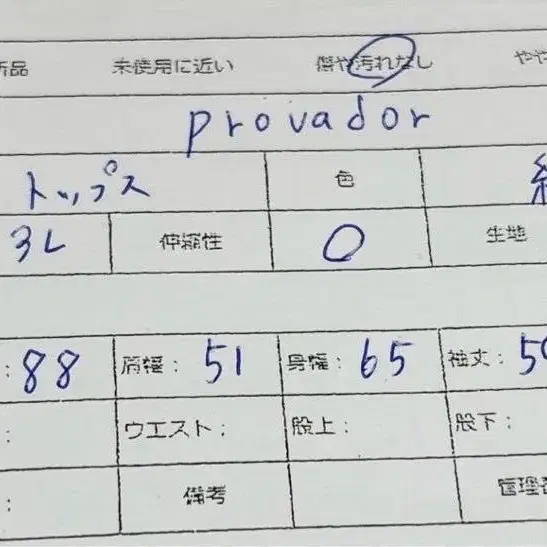 新品 未使用に近い 傷や汚れなし やや
provador
トップス 色
3L 伸縮性 〇 生地
: 88 肩幅: 51 身幅: 65 袖丈: 5
: ウエスト: 股上: 股下:
: 備考 管理番